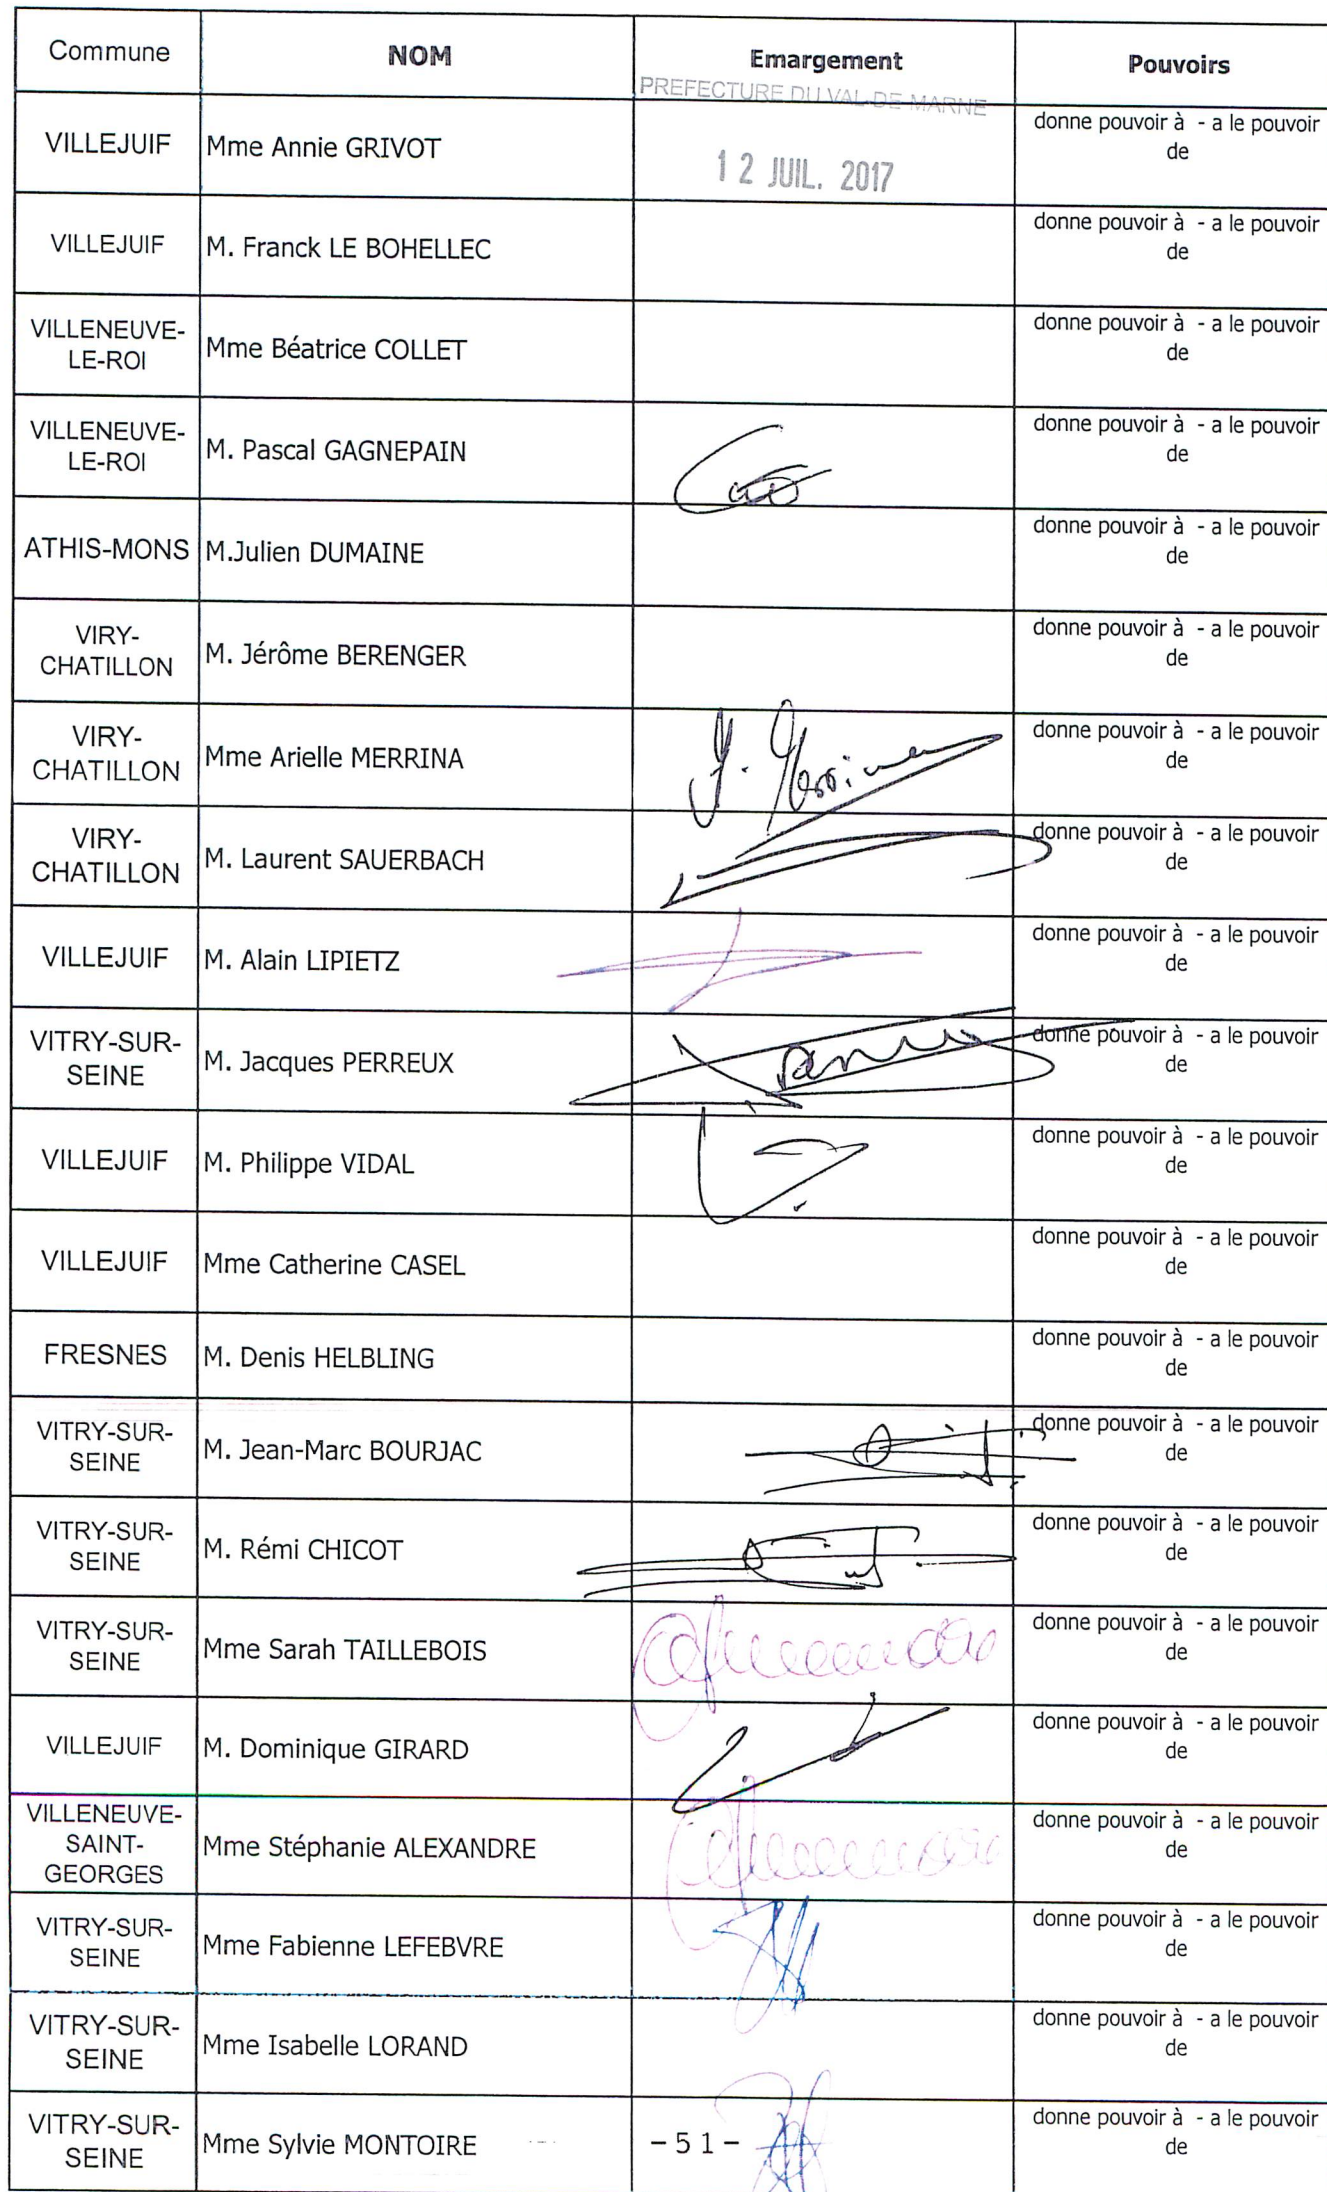 Commune NOM Emargement Pouvoirs
PREFECTURE DU VAL-DE-MARNE
12 JUIL. 2017
VILLEJUIF Mme Annie GRIVOT donne pouvoir à - a le pouvoir
de
VILLEJUIF M. Franck LE BOHELLEC donne pouvoir à - a le pouvoir
de
VILLENEUVE-
LE-ROI Mme Béatrice COLLET donne pouvoir à - a le pouvoir
de
VILLENEUVE-
LE-ROI M. Pascal GAGNEPAIN donne pouvoir à - a le pouvoir
de
ATHIS-MONS M.Julien DUMAINE donne pouvoir à - a le pouvoir
de
VIRY-
CHATILLON M. Jérôme BERENGER donne pouvoir à - a le pouvoir
de
VIRY-
CHATILLON Mme Arielle MERRINA donne pouvoir à - a le pouvoir
de
VIRY-
CHATILLON M. Laurent SAUERBACH donne pouvoir à - a le pouvoir
de
VILLEJUIF M. Alain LIPIETZ donne pouvoir à - a le pouvoir
de
VITRY-SUR-
SEINE M. Jacques PERREUX donne pouvoir à - a le pouvoir
de
VILLEJUIF M. Philippe VIDAL donne pouvoir à - a le pouvoir
de
VILLEJUIF Mme Catherine CASEL donne pouvoir à - a le pouvoir
de
FRESNES M. Denis HELBLING donne pouvoir à - a le pouvoir
de
VITRY-SUR-
SEINE M. Jean-Marc BOURJAC donne pouvoir à - a le pouvoir
de
VITRY-SUR-
SEINE M. Rémi CHICOT donne pouvoir à - a le pouvoir
de
VITRY-SUR-
SEINE Mme Sarah TAILLEBOIS donne pouvoir à - a le pouvoir
de
VILLEJUIF M. Dominique GIRARD donne pouvoir à - a le pouvoir
de
VILLENEUVE-
SAINT-
GEORGES Mme Stéphanie ALEXANDRE donne pouvoir à - a le pouvoir
de
VITRY-SUR-
SEINE Mme Fabienne LEFEBVRE donne pouvoir à - a le pouvoir
de
VITRY-SUR-
SEINE Mme Isabelle LORAND donne pouvoir à - a le pouvoir
de
VITRY-SUR-
SEINE Mme Sylvie MONTOIRE donne pouvoir à - a le pouvoir
de
-51-